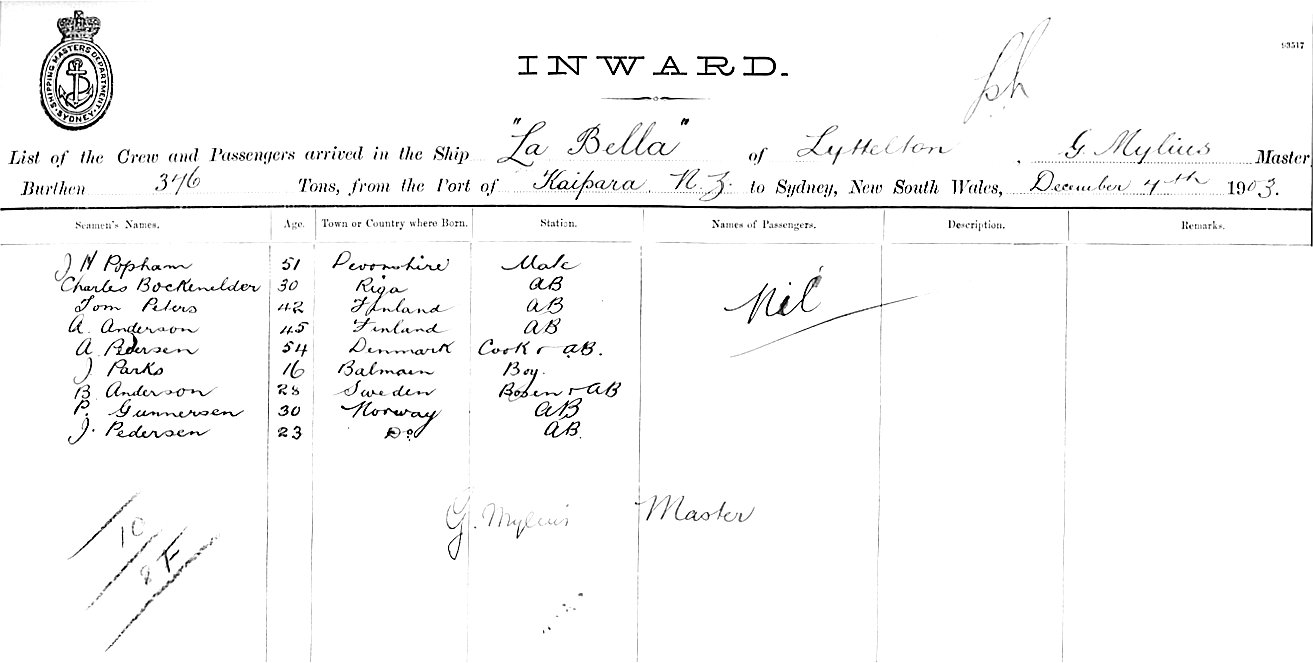 SHIPPING MASTERS DEPARTMENT
SYDNEY
93517
INWARD.
List of the Crew and Passengers arrived in the Ship "La Bella" of Lyttelton, G Mylius Master,
Burthen 346 Tons, from the Port of Kaipara N.Z. to Sydney, New South Wales, December 4th 1903.
Seamen's Names. Age. Town or Country where Born. Station. Names of Passengers. Description. Remarks.
J H Popham 51 Devonshire Mate
Charles Bockenelder 30 Riga AB
Tom Peters 42 Finland AB
A. Anderson 45 Finland AB
A Pedersen 54 Denmark Cook & AB.
J Parks 16 Balmain Boy.
B Anderson 28 Sweden Bosen & AB
P. Gunnersen 30 Norway AB
J. Pedersen 23 Do AB.
Nil
G. Mylius Master
10
8 F